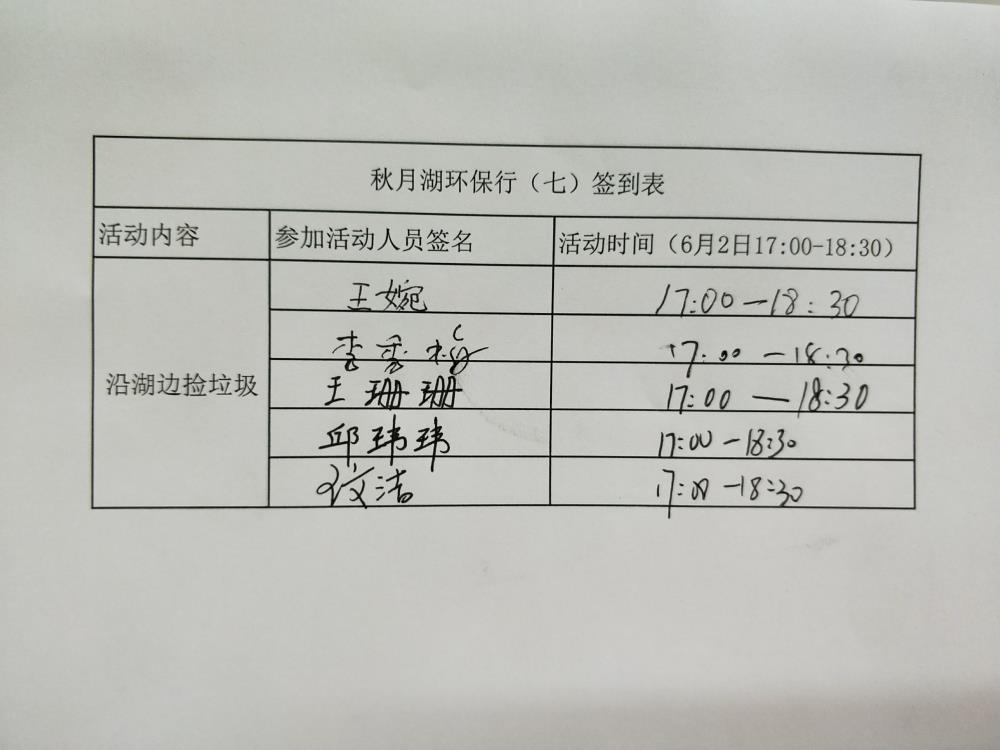 秋月湖环保行（七）签到表
活动内容 参加活动人员签名 活动时间（6月2日17:00-18:30）
沿湖边捡垃圾
王婉 17:00-18:30
李秀梅 17:00-18:30
王珊珊 17:00-18:30
邱玮玮 17:00-18:30
洁 17:00-18:30